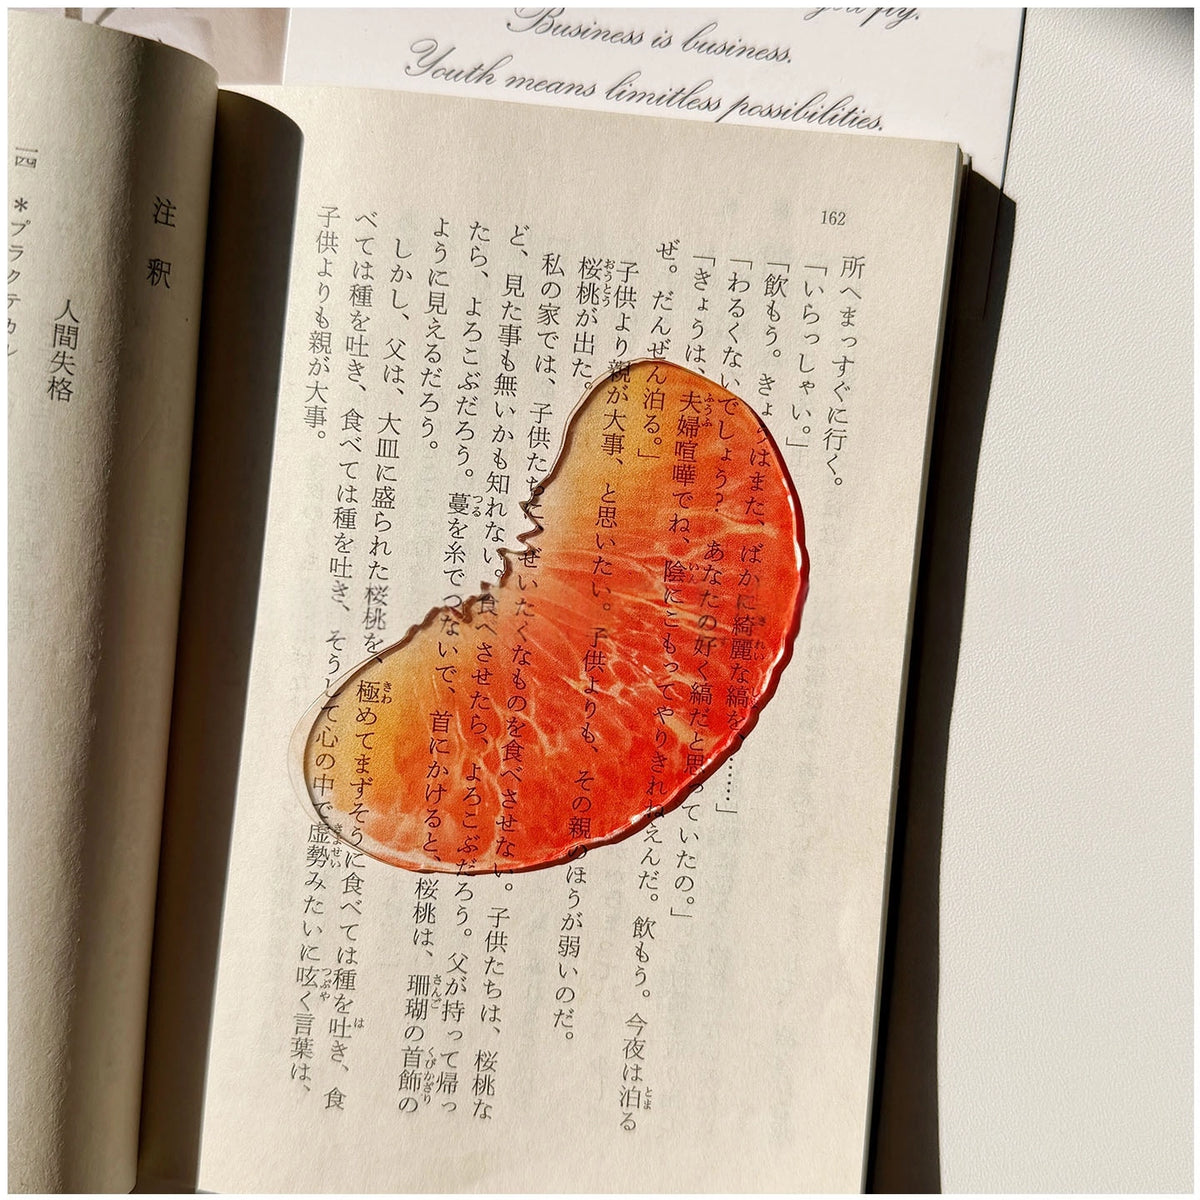 you fly.
Business is business.
Youth means limitless possibilities.
162
所へまっすぐに行く。
「いらっしゃい。」
「飲もう。きょうはまた、ばかに綺麗な縞を、……」
「わるくないでしょう? あなたの好く縞だと思っていたの。」
「きょうは、夫婦喧嘩でね、陰にこもってやりきれねえんだ。飲もう。今夜は泊る
ぜ。だんぜん泊る。」
子供より親が大事、と思いたい。子供よりも、その親のほうが弱いのだ。
桜桃が出た。
私の家では、子供たちに、ぜいたくなものを食べさせない。子供たちは、桜桃な
ど、見た事も無いかも知れない。食べさせたら、よろこぶだろう。父が持って帰っ
たら、よろこぶだろう。蔓を糸でつないで、首にかけると、桜桃は、珊瑚の首飾の
ように見えるだろう。
しかし、父は、大皿に盛られた桜桃を、極めてまずそうに食べては種を吐き、食
べては種を吐き、食べては種を吐き、そうして心の中で虚勢みたいに呟く言葉は、
子供よりも親が大事。
注釈
人間失格
一四 *プラクテカル